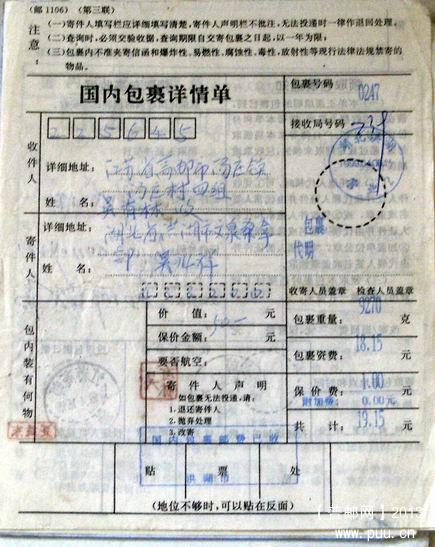 (邮1106)(第三联)
注意：
(一)寄件人填写栏应详细填写清楚，寄件人声明栏不批注，无法投递时一律作退回处理。
(二)查询时，必须交验收据，查询期限自交寄包裹之日起，以一年为限；
(三)包裹内不准夹寄信函和爆炸性、易燃性、腐蚀性、毒性、放射性等现行法律法规禁寄的物品。
国内包裹详情单
包裹号码
0247
225645
接收局号码
收件人
详细地址：江苏省高邮市
姓名：
寄件人
详细地址：湖北省洪湖市
姓名：
包裹
代明
收寄人员盖章 检查人员盖章
包内装有何物
价值： 元
保价金额： 元
要否航空：
寄件人声明
如包裹无法投递，请：
1.退还寄件人
2.抛弃处理
3.改寄
包裹重量： 9270 克
包裹资费： 18.15 元
保价费： 1.00 元
附加费： 0.00元
共计： 19.15 元
国内包裹邮费已收
洪湖市
贴票处
(地位不够时，可以贴在反面)
www.puu.cn